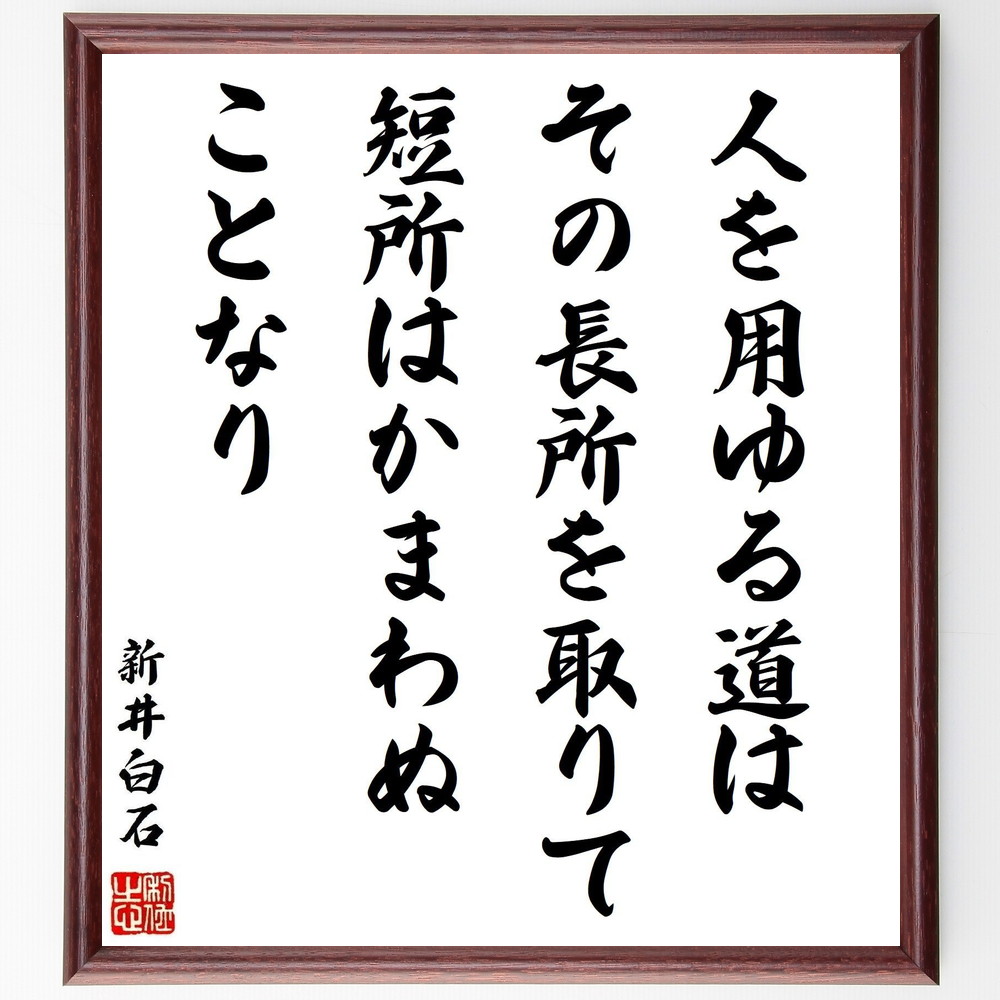 人を用ゆる道は
その長所を取りて
短所はかまわぬ
ことなり
新井白石